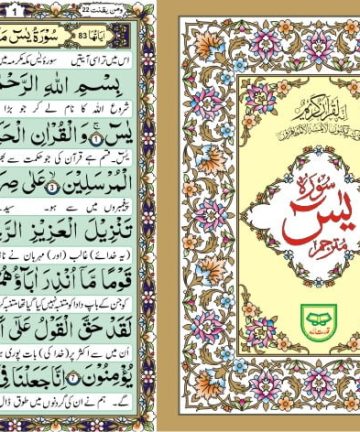 1 ومن يقنت 22
اٰیاتها 83 سُوْرَةُ يٰسٓ
اس میں تراسی آیتیں سورۃ یٰسٓ مکہ مکرمہ میں
بِسْمِ اللّٰهِ الرَّحْمٰ
شروع اللہ کا نام لے کر جو بڑا
يٰسٓ ۚ 1 وَالْقُرْاٰنِ الْحَ
یٰسٓ۔ قسم ہے قرآن کی جو حکمت سے
الْمُرْسَلِيْنَ 3 عَلٰى صِرَ
پیغمبروں میں سے ہو۔ سیدے
تَنْزِيْلَ الْعَزِيْزِ الرَّ
(یہ خدائے) غالب (اور) مہربان نے
قَوْمًا مَّاۤ اُنْذِرَ اٰبَآؤُهُمْ
کو جن کے باپ دادا کو متنبہ نہیں کیا گیا تھا متنبہ
لَقَدْ حَقَّ الْقَوْلُ عَلٰۤى اَ
اُن میں سے اکثر پر (خدا کی) بات پوری ہو
يُؤْمِنُوْنَ 7 اِنَّا جَعَلْنَا فِيْۤ
گے۔ ہم نے ان کی گردنوں میں طوق ڈال
اِنَّهٗ لَقُرْاٰنٌ كَرِيْمٌ
سورۃ
یٰسٓ
مترجم